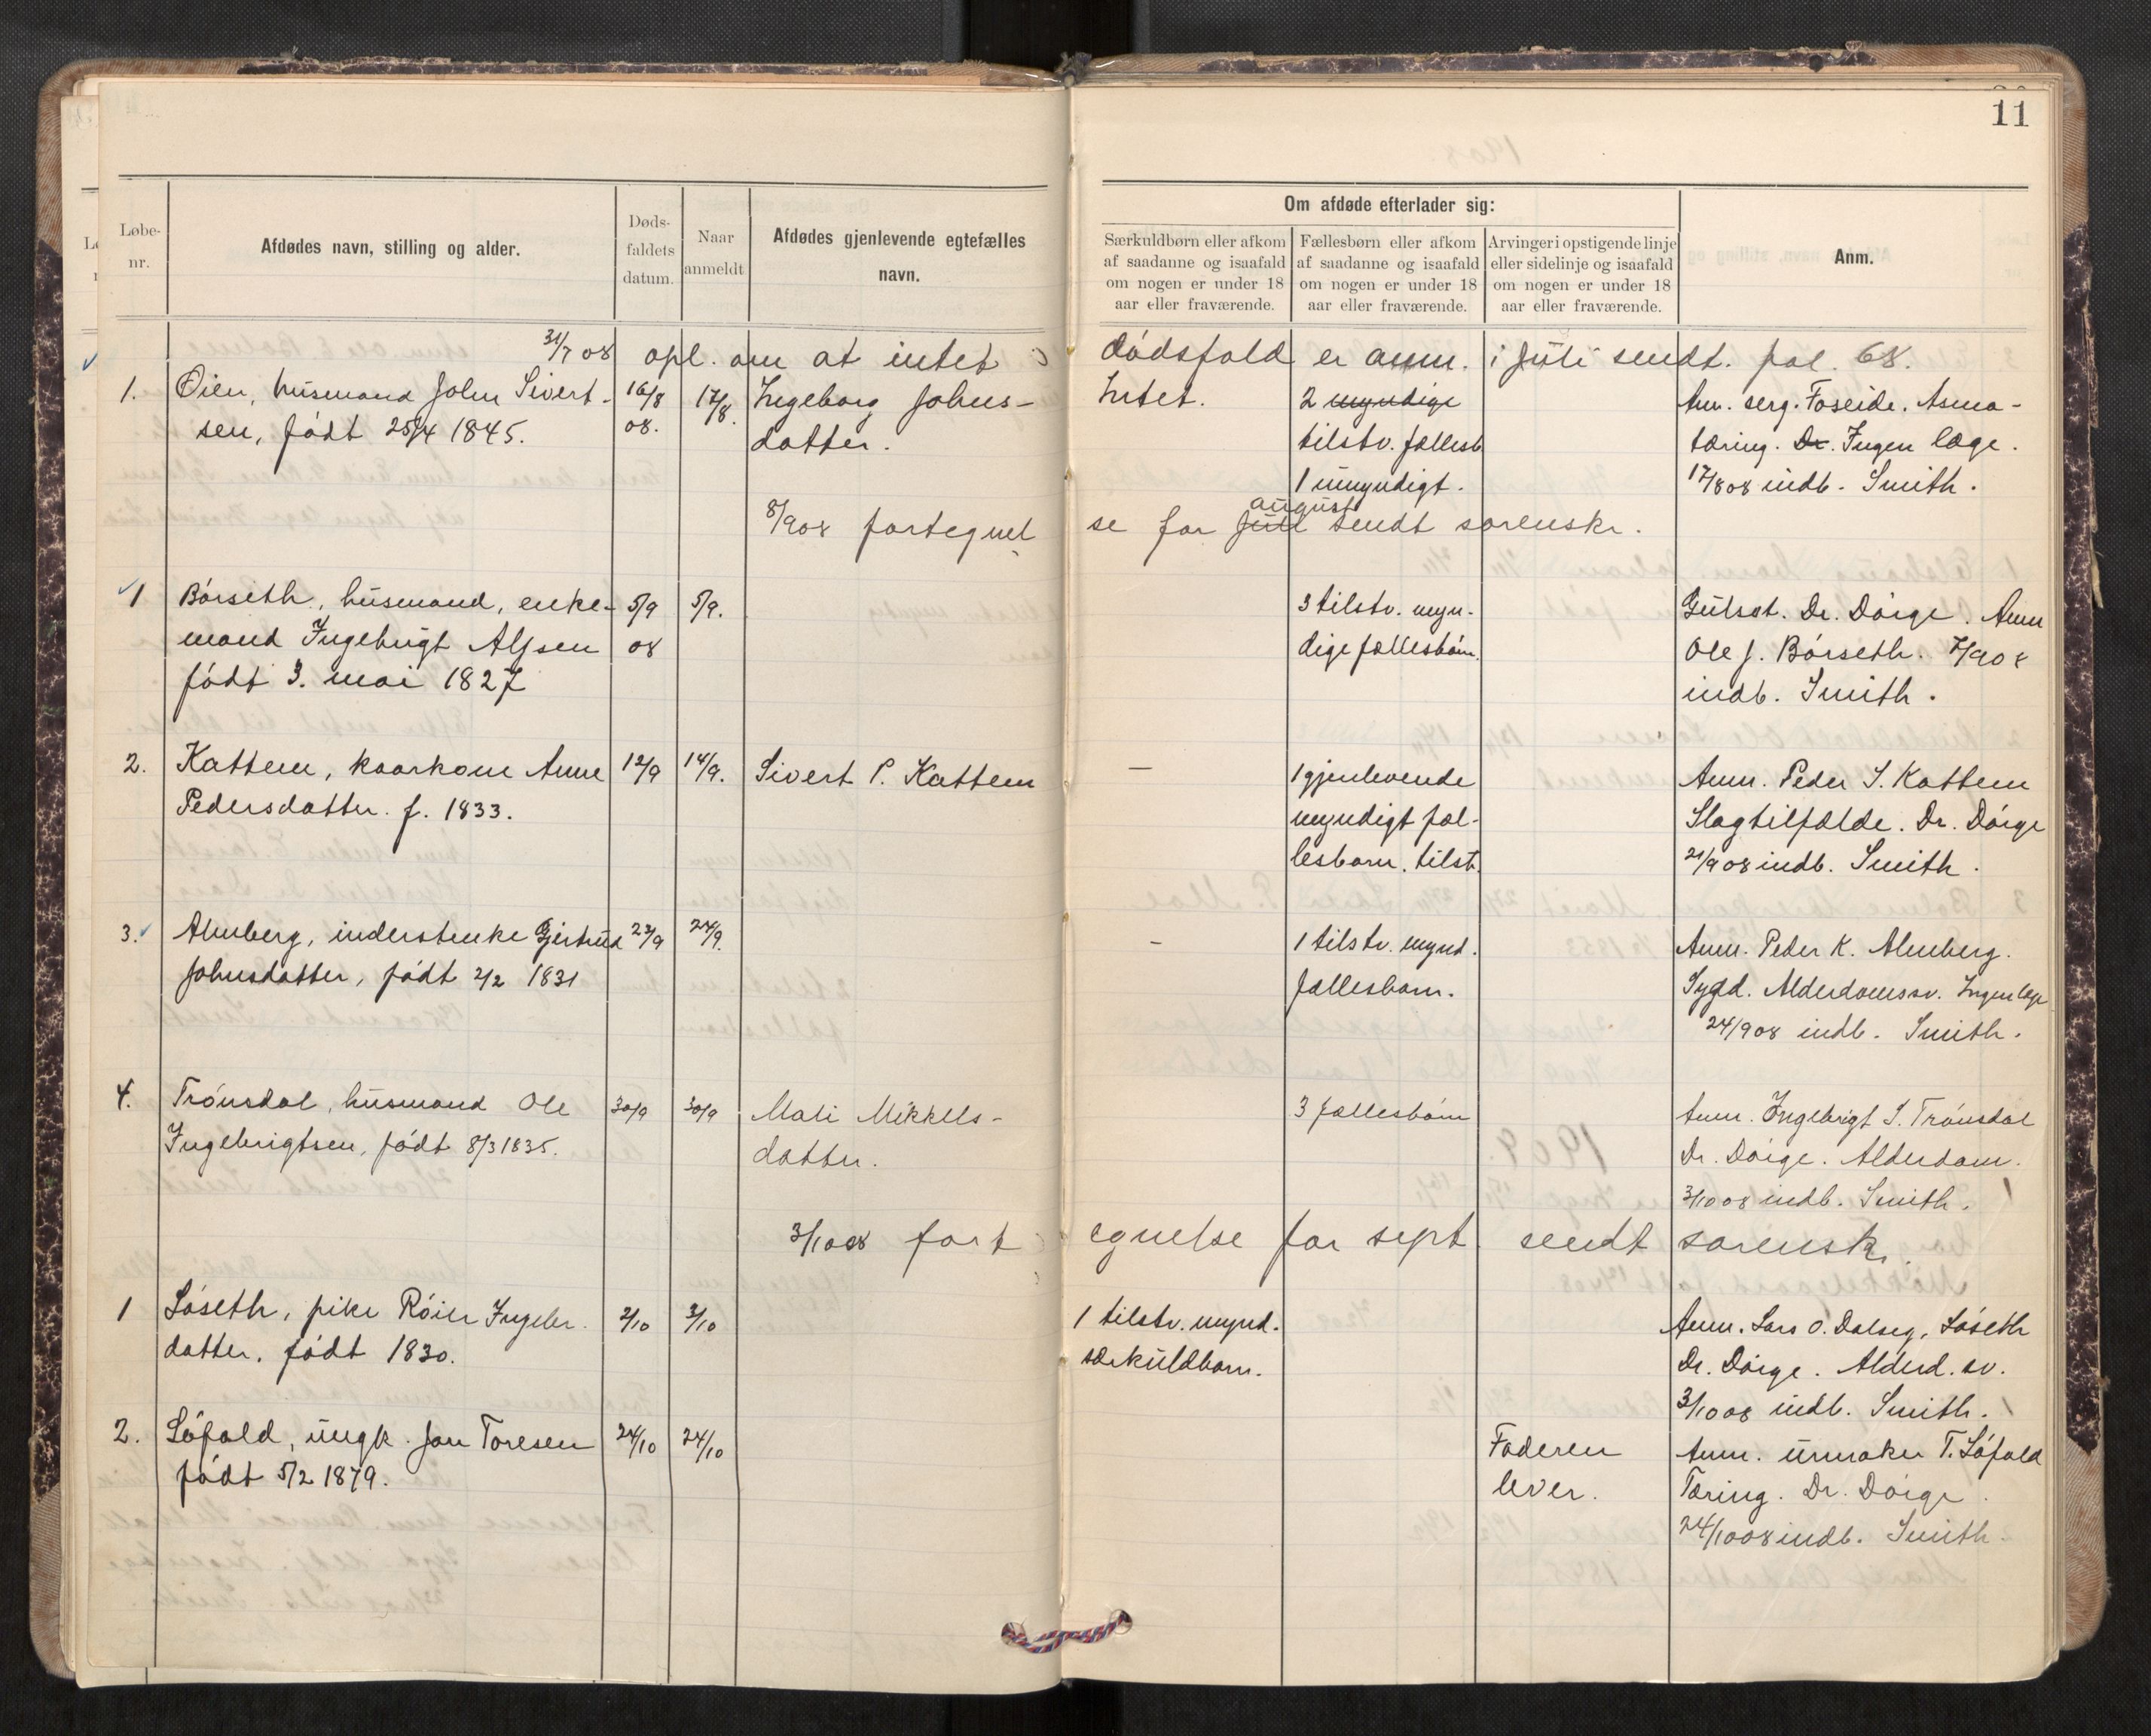 11
Løbe-
nr.
Afdødes navn, stilling og alder.
Døds-
faldets
datum.
Naar
anmeldt
Afdødes gjenlevende egtefælles
navn.
Om afdøde efterlader sig:
Særkuldbørn eller afkom
af saadanne og isaafald
om nogen er under 18
aar eller fraværende.
Fællesbørn eller afkom
af saadanne og isaafald
om nogen er under 18
aar eller fraværende.
Arvinger i opstigende linje
eller sidelinje og isaafald
om nogen er under 18
aar eller fraværende.
Anm.
31/7 08 opl. om at intet dødsfald er anm. i juli sendt. pol. 68.
1. Øien, husmand John Sivert-
sen, født 25/4 1845.
16/8
08.
17/8.
Ingeborg Johns-
datter.
Intet.
2 myndige
tilstv. fællesb
1 umyndigt.
Anm. serg. Foseide. Asma-
tæring. Dr. Ingen læge.
17/8 08 indb. Smith.
8/9 08 fortegnel se for Juli august sendt sorenskr.
1 Børseth, husmand, enke-
mand Ingebrigt Alfsen
født 3. mai 1827
5/9
08
5/9.
3 tilstv. myn-
dige fællesbørn.
Gulsot. Dr. Dørge. Anm
Ole J. Børseth. 7/9 08
indb. Smith.
2. Kattem, kaarkone Anne
Pedersdatter. f. 1833.
12/9
14/9.
Sivert P. Kattem
—
1 gjenlevende
myndigt fæl-
lesbarn. tilst.
Anm. Peder S. Kattem
Slagtilfælde. Dr. Dørge
21/9 08 indb. Smith.
3. Almberg, inderstenke Gjertrud
Johnsdatter, født 2/2 1831
23/9
24/9.
-
1 tilstv. mynd.
fællesbarn.
Anm. Peder K. Almberg.
Sygd. Alderdomssv. Ingen læge
24/9 08 indb. Smith.
4. Trønsdal, husmand Ole
Ingebrigtsen, født 8/3 1835.
30/9
30/9
Mali Mikkels-
datter.
3 fællesbørn
Anm. Ingebrigt I. Trønsdal
Dr. Dørge. Alderdom.
3/10 08 indb. Smith.
3/10 08 fort egnelse for sept. sendt sorensk.
1 Løseth, pike Røier Ingebr.
datter, født 1830.
2/10
3/10
1 tilstv. mynd.
særkuldbarn.
Anm. Lars O. Dalseg, Løseth
Dr. Dørge. Alderd. sv.
3/10 08 indb. Smith.
2. Løfald, ungk. Jon Toresen
født 5/2 1879.
24/10
24/10
Faderen
lever.
Anm. urmaker T. Løfald
Tæring. Dr. Dørge.
24/10 08 indb. Smith.